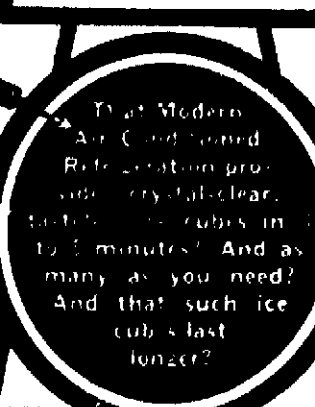 That Modern
Air Conditioned
Refrigeration pro-
vides crystal-clear,
cubes in
to 5 minutes? And as
many as you need?
And that such ice
cubes last
longer?